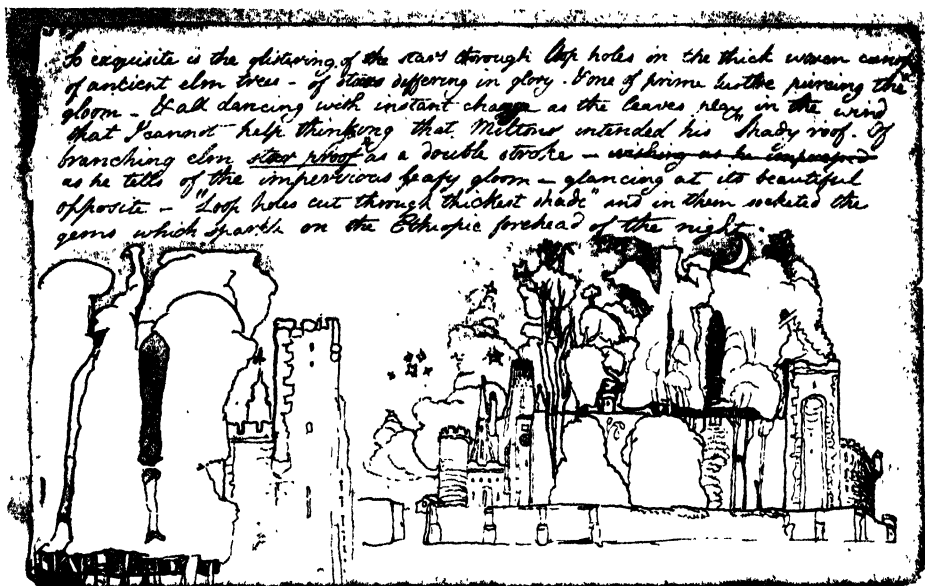 So exquisite is the glistering of the stars through loop holes in the thick woven canopy
of ancient elm trees - of stars differing in glory. & one of prime lustre piercing the
gloom - & all dancing with instant change as the leaves play in the wind
that I cannot help thinking that Milton intended his "Shady roof. Of
branching elm star proof" as a double stroke -
as he tells of the impervious leafy gloom - glancing at its beautiful
opposite - "Loop holes cut through thickest shade" and in them socketed the
gems which sparkle on the Ethiopic forehead of the night.